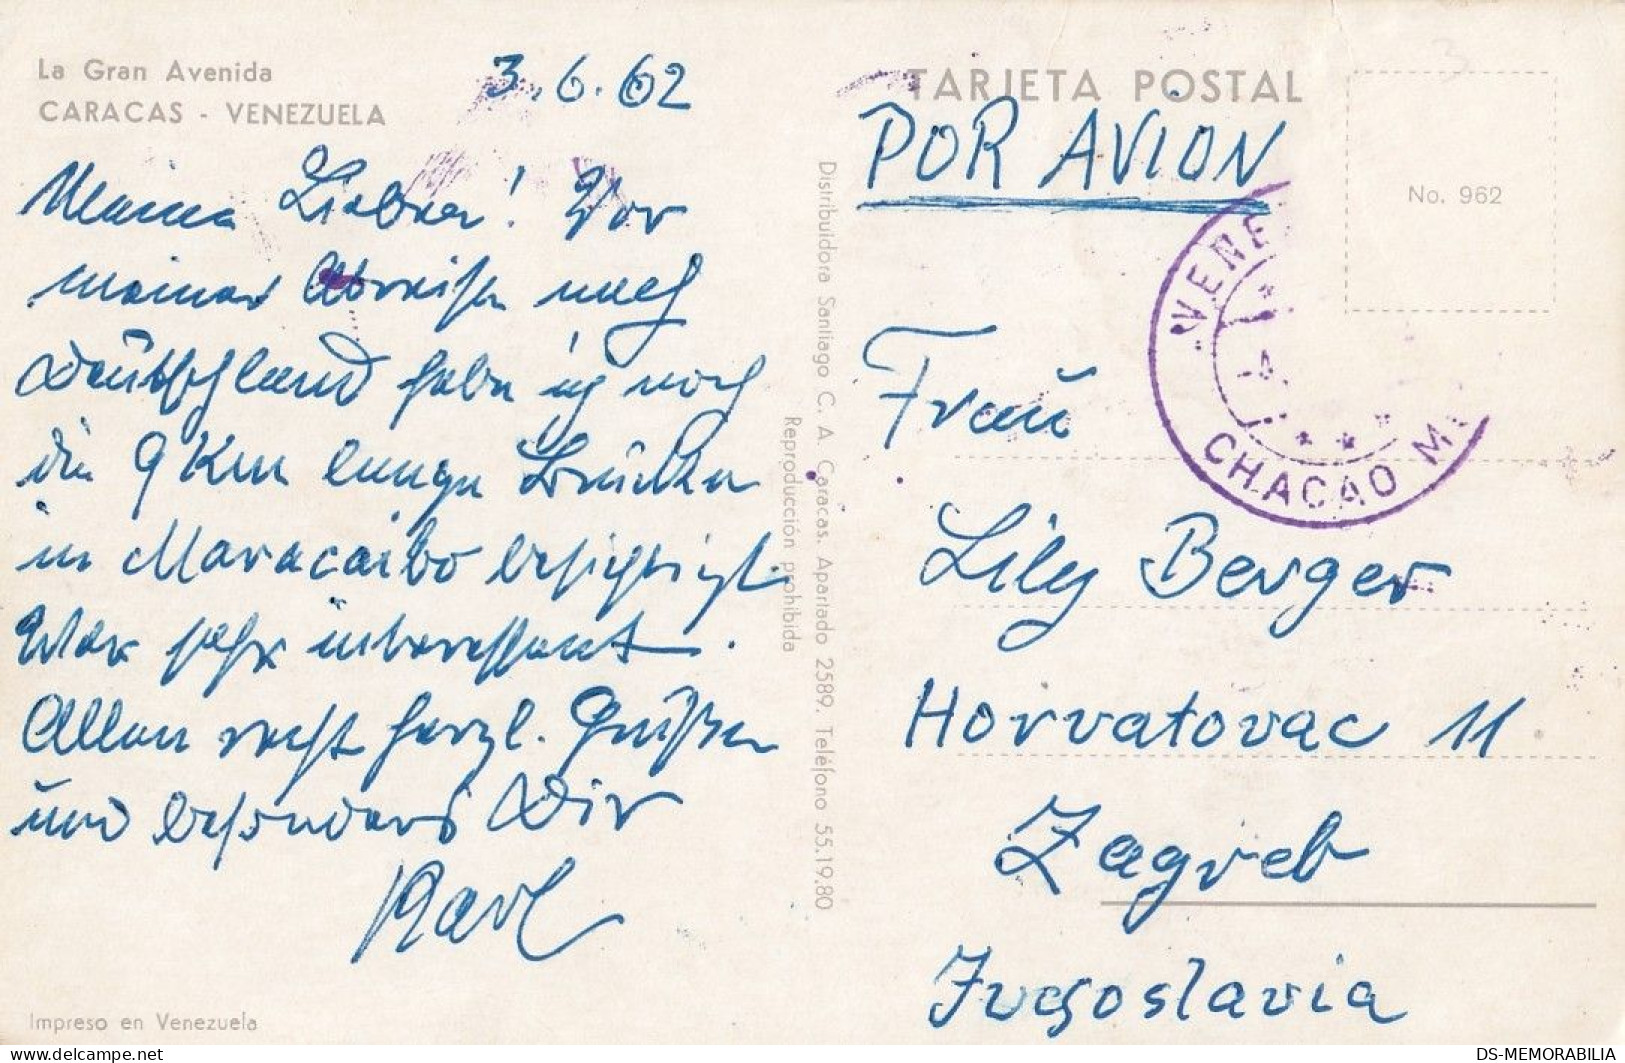 La Gran Avenida
CARACAS - VENEZUELA
3.6.62
Meine Lieben! Vor
meiner Abreise nach
Deutschland habe ich noch
die 9 Km lange Brücke
in Maracaibo besichtigt.
War sehr interessant.
Allen recht herzl. Grüße
und besonders Dir
Karl
Impreso en Venezuela
Distribuidora Santiago C. A. Caracas. Apartado 2589. Teléfono 55.19.80
Reproducción prohibida
TARJETA POSTAL
POR AVION
No. 962
VENE
CHACAO M
Frau
Lily Berger
Horvatovac 11
Zagreb
Jugoslavia
DS-MEMORABILIA